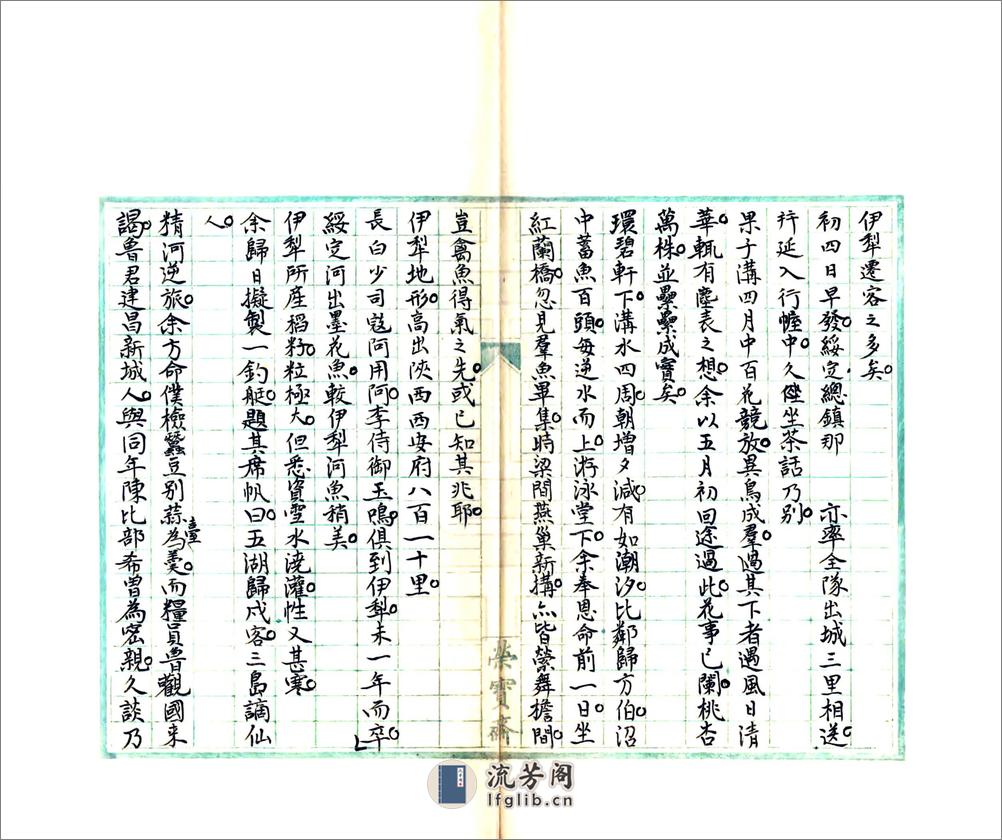 伊犁遷客之多矣。
初四日早發。綏定總鎮那　亦率全隊出城三里相送。
行延入行幄中。久坐茶話乃別。
果子溝四月中百花競放。異鳥成羣。過其下者遇風日清
華。輒有塵表之想。余以五月初回途過此。花事已闌。桃杏
萬株。並纍纍成實矣。
環碧軒下。溝水四周。朝增夕減。有如潮汐。比鄰歸方伯。沼
中蓄魚百頭。每逆水而上。游泳堂下。余奉恩命前一日。坐
紅蘭橋。忽見羣魚畢集。時梁間燕巢新搆。亦皆縈舞檐間。
豈禽魚得氣之先。或已知其兆耶。
伊犁地形。高出陜西西安府八百一十里。
長白少司寇阿用阿。李侍御玉鳴。俱到伊犁。未一年而卒。
綏定河出墨花魚。較伊犁河魚稍美。
伊犁所產稻籽。粒極大。但悉資雪水澆灌。性又甚寒。
余歸日擬製一釣艇。題其席帆曰。五湖歸戍客。三島謫仙
人。
精河逆旅。余方命僕檢蠶豆別蒜為羹。而糧員魯觀國來
壹
謁。魯君建昌新城人。與同年陳比部希曾為密親。久談乃
榮寶齋
流芳阁
lfglib.cn